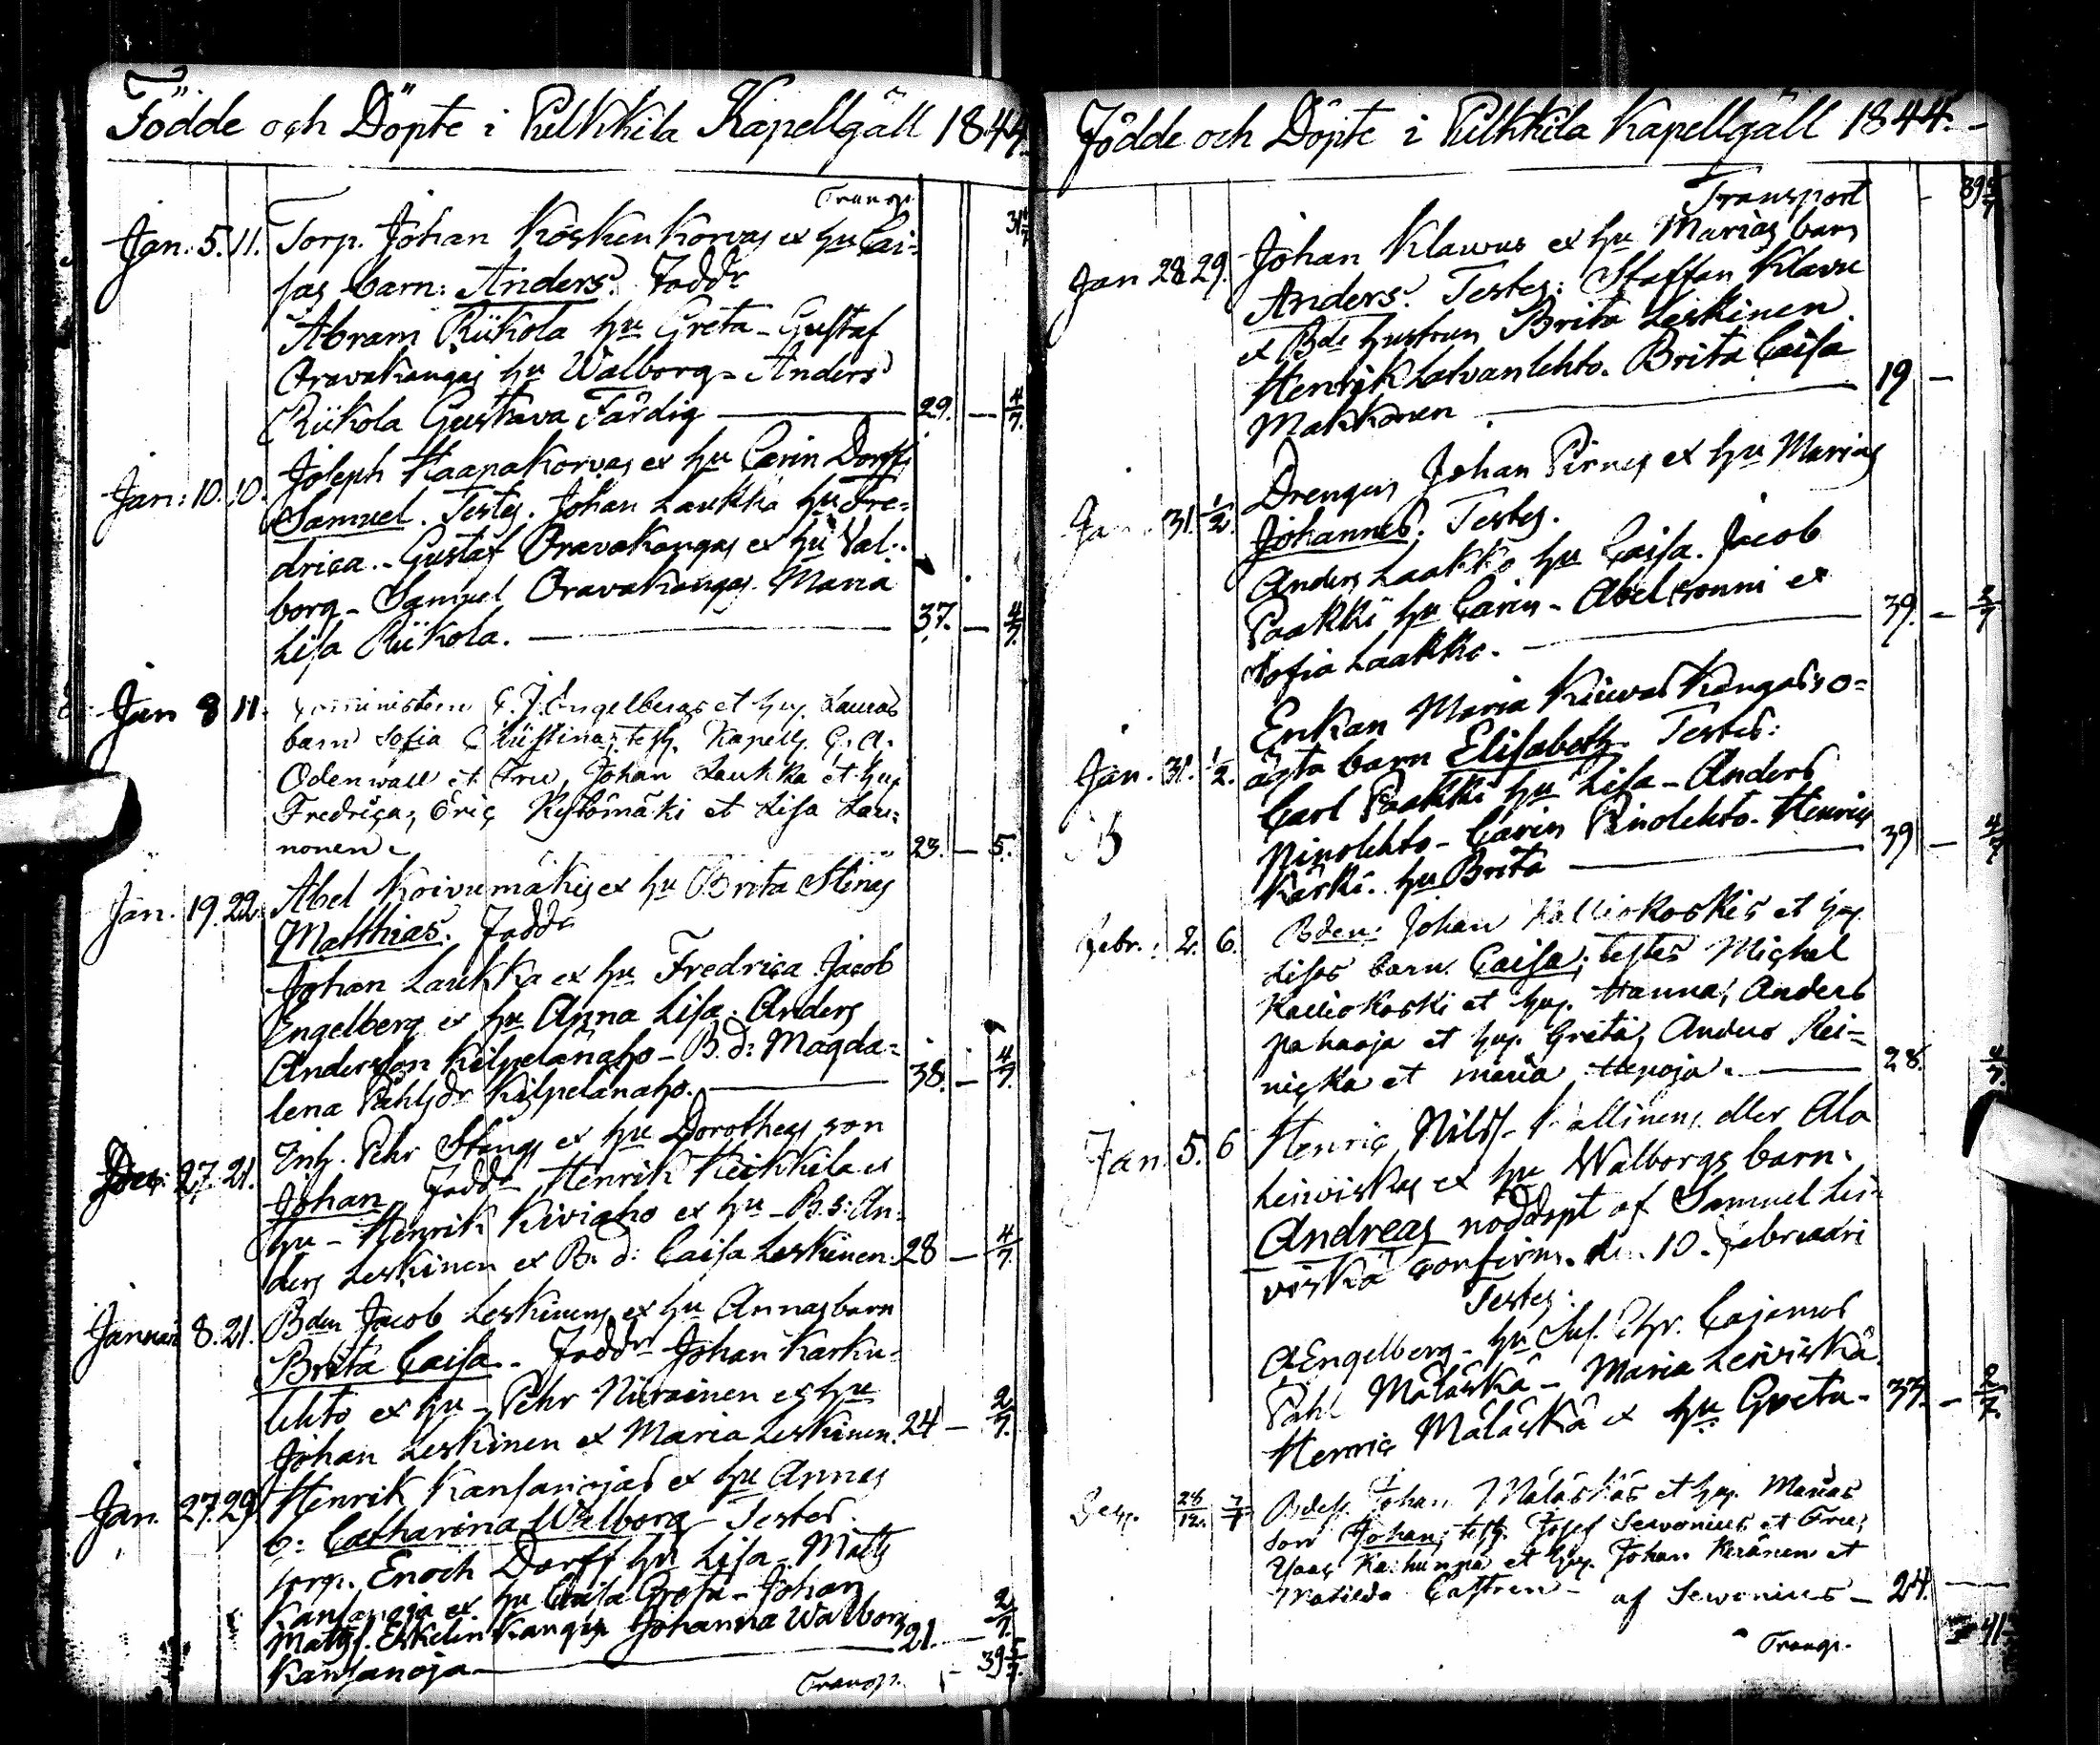 Födde och Döpte i Pulkkila Kapellgäll 1844.
Transp.
Jan. 5. 11. Torp. Johan Koskenkorvas et hu Cai-
sas barn: Anders. Faddr
Abram Riikola hu Greta - Gustaf
Oravakangas hu Walborg - Anders
Riikola Gustava Färdig 29. — 4/7.
Jan: 10. 10. Joseph Haapakorvas et hu Carin Dorffs
Samuel. Testes. Johan Laukka hu Fre-
drica. - Gustaf Oravakangas et hu Val-
borg - Samuel Oravakangas. Maria
Lisa Riikola. 37. — 4/7.
Jan 8 11. C. J. Engelbergs et hus. Lauras
barn Sofia Christina; test. Kapell. G. A.
Odenwall et Fru, Johan Laukka et hus
Fredrica, Eric Kestomäki et Lisa Lau-
nonen. 23. — 5.
Jan. 19. 22. Abel Koivumäkis et hu Brita Stinas
Matthias. Faddr
Johan Laukka et hu Fredrica Jacob
Engelberg et hu Anna Lisa. Anders
Andersson Kilpelänaho - B. d: Magda-
lena Påhlsdr Kilpelänaho. 38. — 4/7.
27. 21. Inh. Pehr Stengs et hu Dorotheas son
Johan Faddr Henrik Heikkilä et
hu - Henrik Kiviaho et hu - B. s: An-
ders Leskinen et B. d: Caisa Leskinen. 28 — 4/7.
Januari 8. 21. Bden Jacob Leskinens et hu Annas barn
Brita Caisa. Faddr Johan Karku-
lehto et hu - Pehr Niiranen et hu
Johan Leskinen et Maria Leskinen. 24 — 2/7.
Jan. 27. 29 Henrik Kansanojas et hu Annas
b: Catharina Walborg Testes.
torp. Enoch Dorff hu Lisa - Matts
Kansanoja et hu Caisa Greta - Johan
Mattss. Eskelinkangas Johanna Walborg
Kansanoja 21. — 2/7.
Transp. 39 5/7.
Födde och Döpte i Pulkkila Kapellgäll 1844.
Transport 39 5/7
Jan 28. 29. Johan Klavus et hu Marias barn
Anders. Testes: Staffan Klavu
et Bde hustrun Brita Leskinen.
Henrik Latvanlehto. Brita Caisa
Makkonen. 19 —
Jan. 31. 1/2. Drengen Johan Pirnes et hu Marias
Johannes. Testes.
Anders Laakko hu Caisa. Jacob
Paakki hu Carin - Abel et
Sofia Laakko. 39. — 2/7
Jan. 31. 1/2. Enkan Maria Kuivaskangas o-
ägta barn Elisabeth Testes:
Carl Paakki hu Lisa - Anders
Ninolehto - Carin Pinolehto. Henric
Kärki. hu Brita 39 — 4/7
Febr.: 2. 6. Bden: Johan Kalliokoskis et hus.
Lisas barn. Caisa; testes Michel
Kalliokoski et hus. Hanna, Anders
pahaoja et hus. Greta, Anders Rei-
nicka et Maria Hepoja. 28. 4/7.
Jan. 5. 6 Henric Nilss. Kallinens eller Ala
Leiviskas et hu Walborgs barn.
Andreas nöddöpt af Samuel Lei-
viskä confirm. den 10. Februari
Testes:
A Engelberg - hu Sus. Chr. Cajanus
Påhl Mäläskä - Maria Leiviskä.
Henric Mäläskä et hu Greta - 33. — 2/7.
28/12. Johan Mäläskäs et hus. Marias
son Johan; test. Josef Servonius et Fru,
Isaac Karhunpä et hus. Johan Keränen et
Matilda Castren - af Servonius — 24. —
Transp. 41